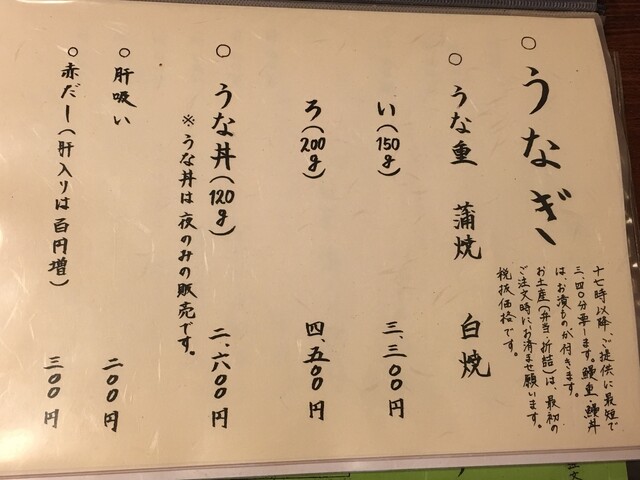 ○うなぎ
十七時以降、ご提供に最短で
三、四〇分要します。鰻重・鰻丼
は、お漬ものが付きます。
お土産(弁当・折詰)は、最初の
ご注文時にお済ませ願います。
税抜価格です。
○うな重 蒲焼 白焼
い(150g) 三、三〇〇円
ろ(200g) 四、五〇〇円
○うな丼(120g) 二、六〇〇円
※うな丼は夜のみの販売です。
○肝吸い 二〇〇円
○赤だし(肝入りは百円増) 三〇〇円